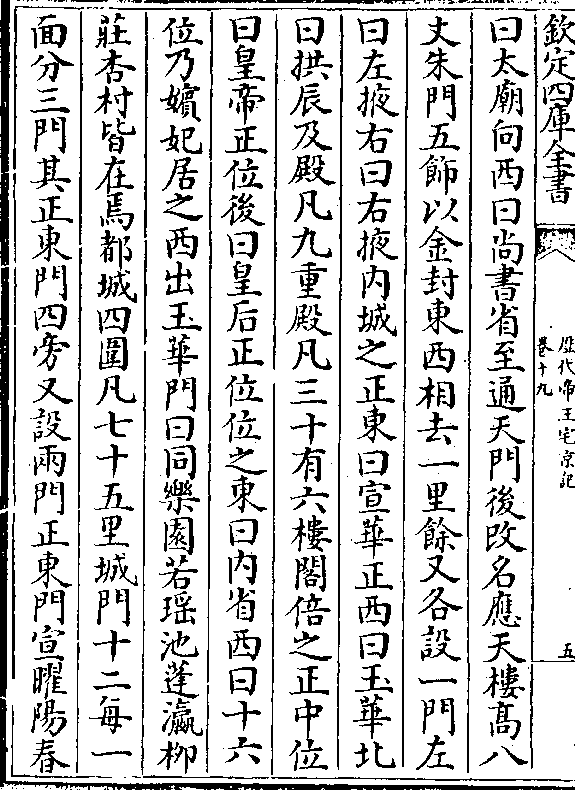 欽定四庫全書
歷代帝王宅京記
卷十九
五
曰太廟向西曰尚書省至通天門後改名應天樓髙八
丈朱門五飾以金封東西相去一里餘又各設一門左
曰左掖右曰右掖内城之正東曰宣華正西曰玉華北
曰拱辰及殿凡九重殿凡三十有六樓閣倍之正中位
曰皇帝正位後曰皇后正位位之東曰内省西曰十六
位乃嬪妃居之西出玉華門曰同樂園若瑶池蓬瀛柳
莊杏村皆在焉都城四圍凡七十五里城門十二每一
面分三門其正東門四旁又設兩門正東門宣曜陽春